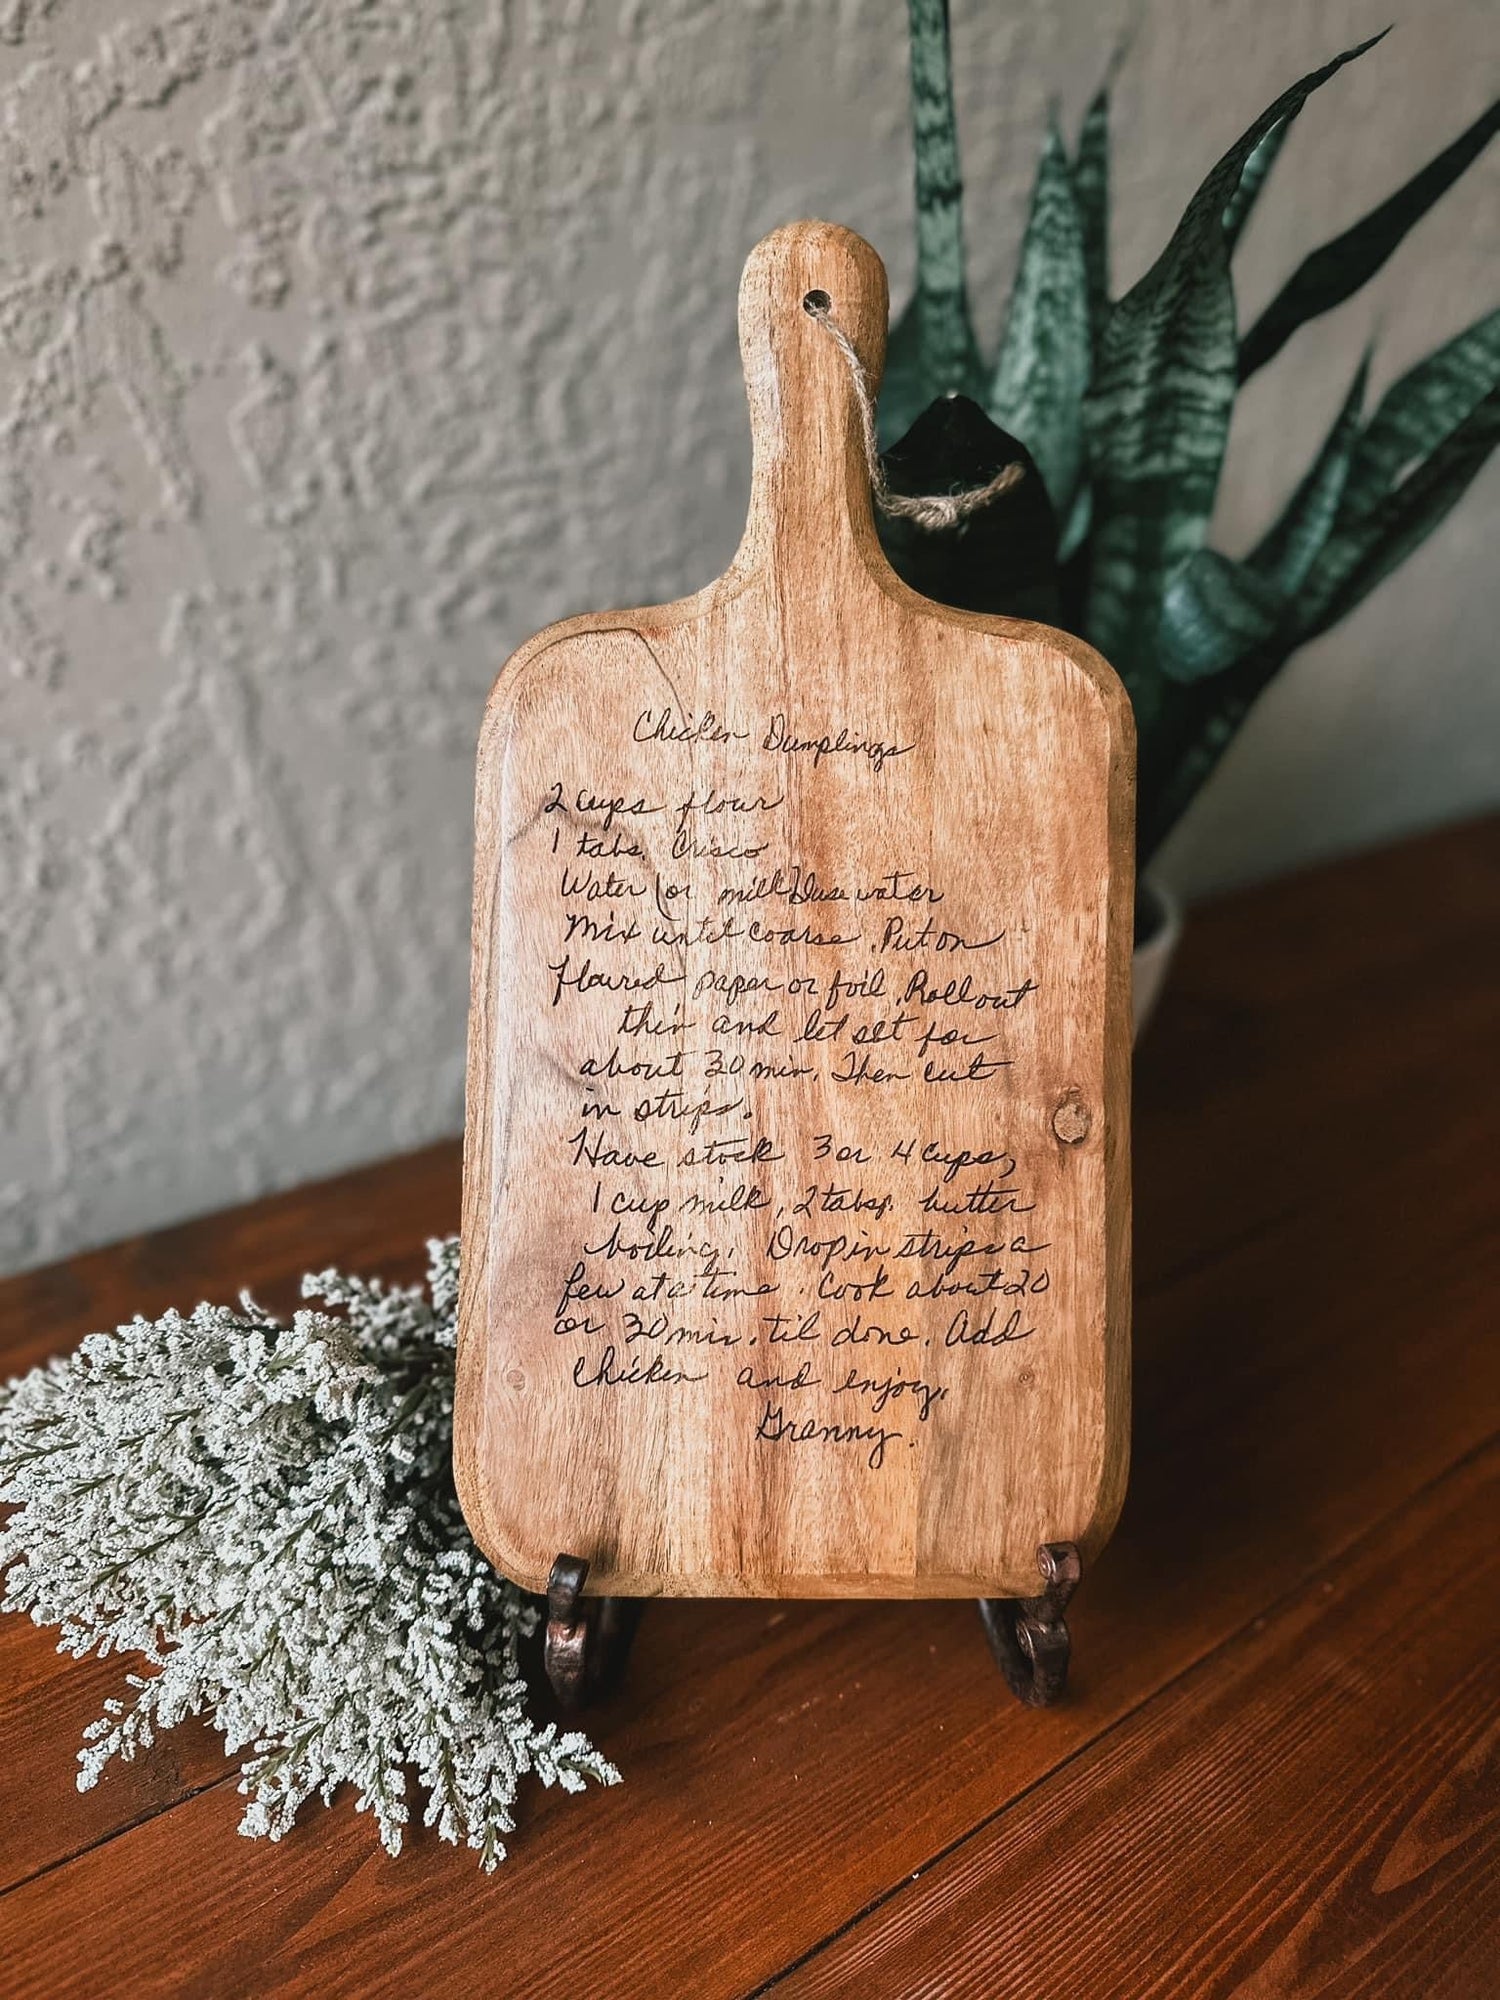 Chicken Dumplings
2 cups flour
1 tabs. Crisco
Water (or milk) I use water
Mix until coarse. Put on
floured paper or foil. Roll out
thin and let set for
about 30 min. Then cut
in strips.
Have stock 3 or 4 cups,
1 cup milk, 2 tabsp. butter
boiling. Drop in strips a
few at a time. Cook about 20
or 30 min. til done. Add
chicken and enjoy.
Granny.